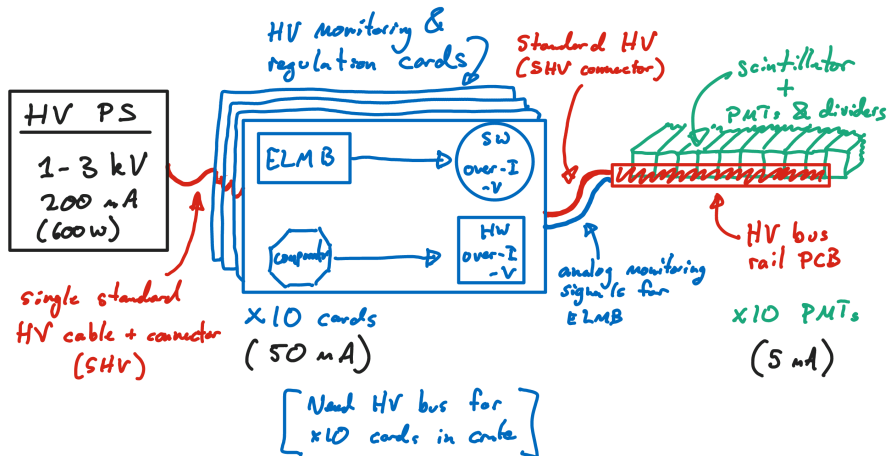 HV PS
1-3 kV
200 mA
(600W)
single standard
HV cable + connector
(SHV)
HV monitoring &
regulation cards
ELMB
SW
over-I
-V
comparator
HW
over-I
-V
x10 cards
(50 mA)
[Need HV bus for
x10 cards in crate]
standard HV
(SHV connector)
analog monitoring
signals for
ELMB
scintillator
+
PMTs & dividers
HV bus
rail PCB
x10 PMTs
(5 mA)